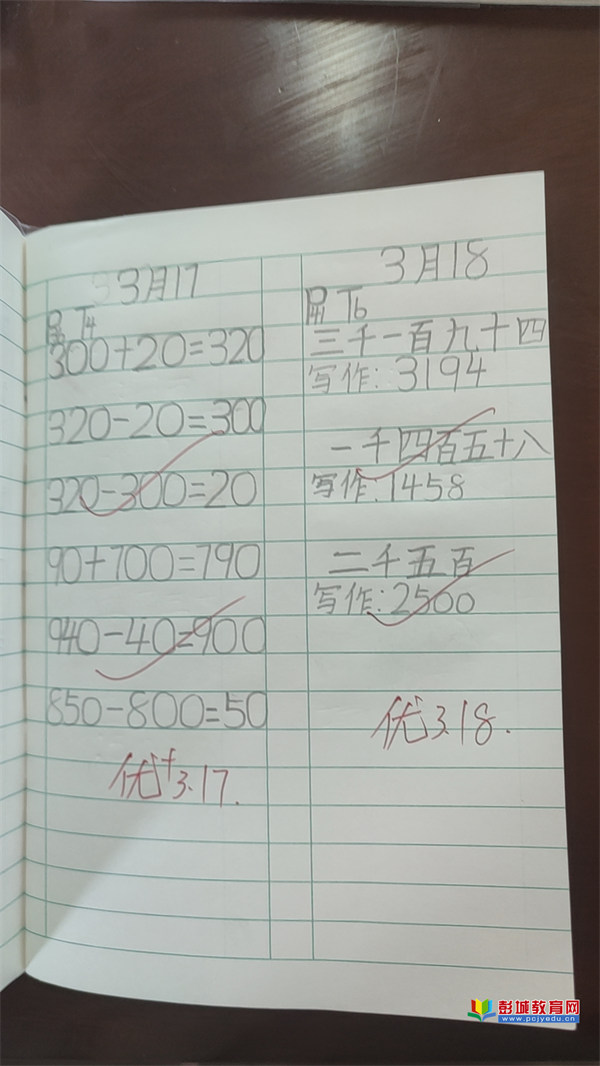 3月17
T4
300+20=320
320-20=300
320-300=20
90+700=790
940-40=900
850-800=50
优+3.17.
3月18
T6
三千一百九十四
写作:3194
一千四百五十八
写作:1458
二千五百
写作:2500
优3.18.
彭城教育网
www.pcjyedu.cn